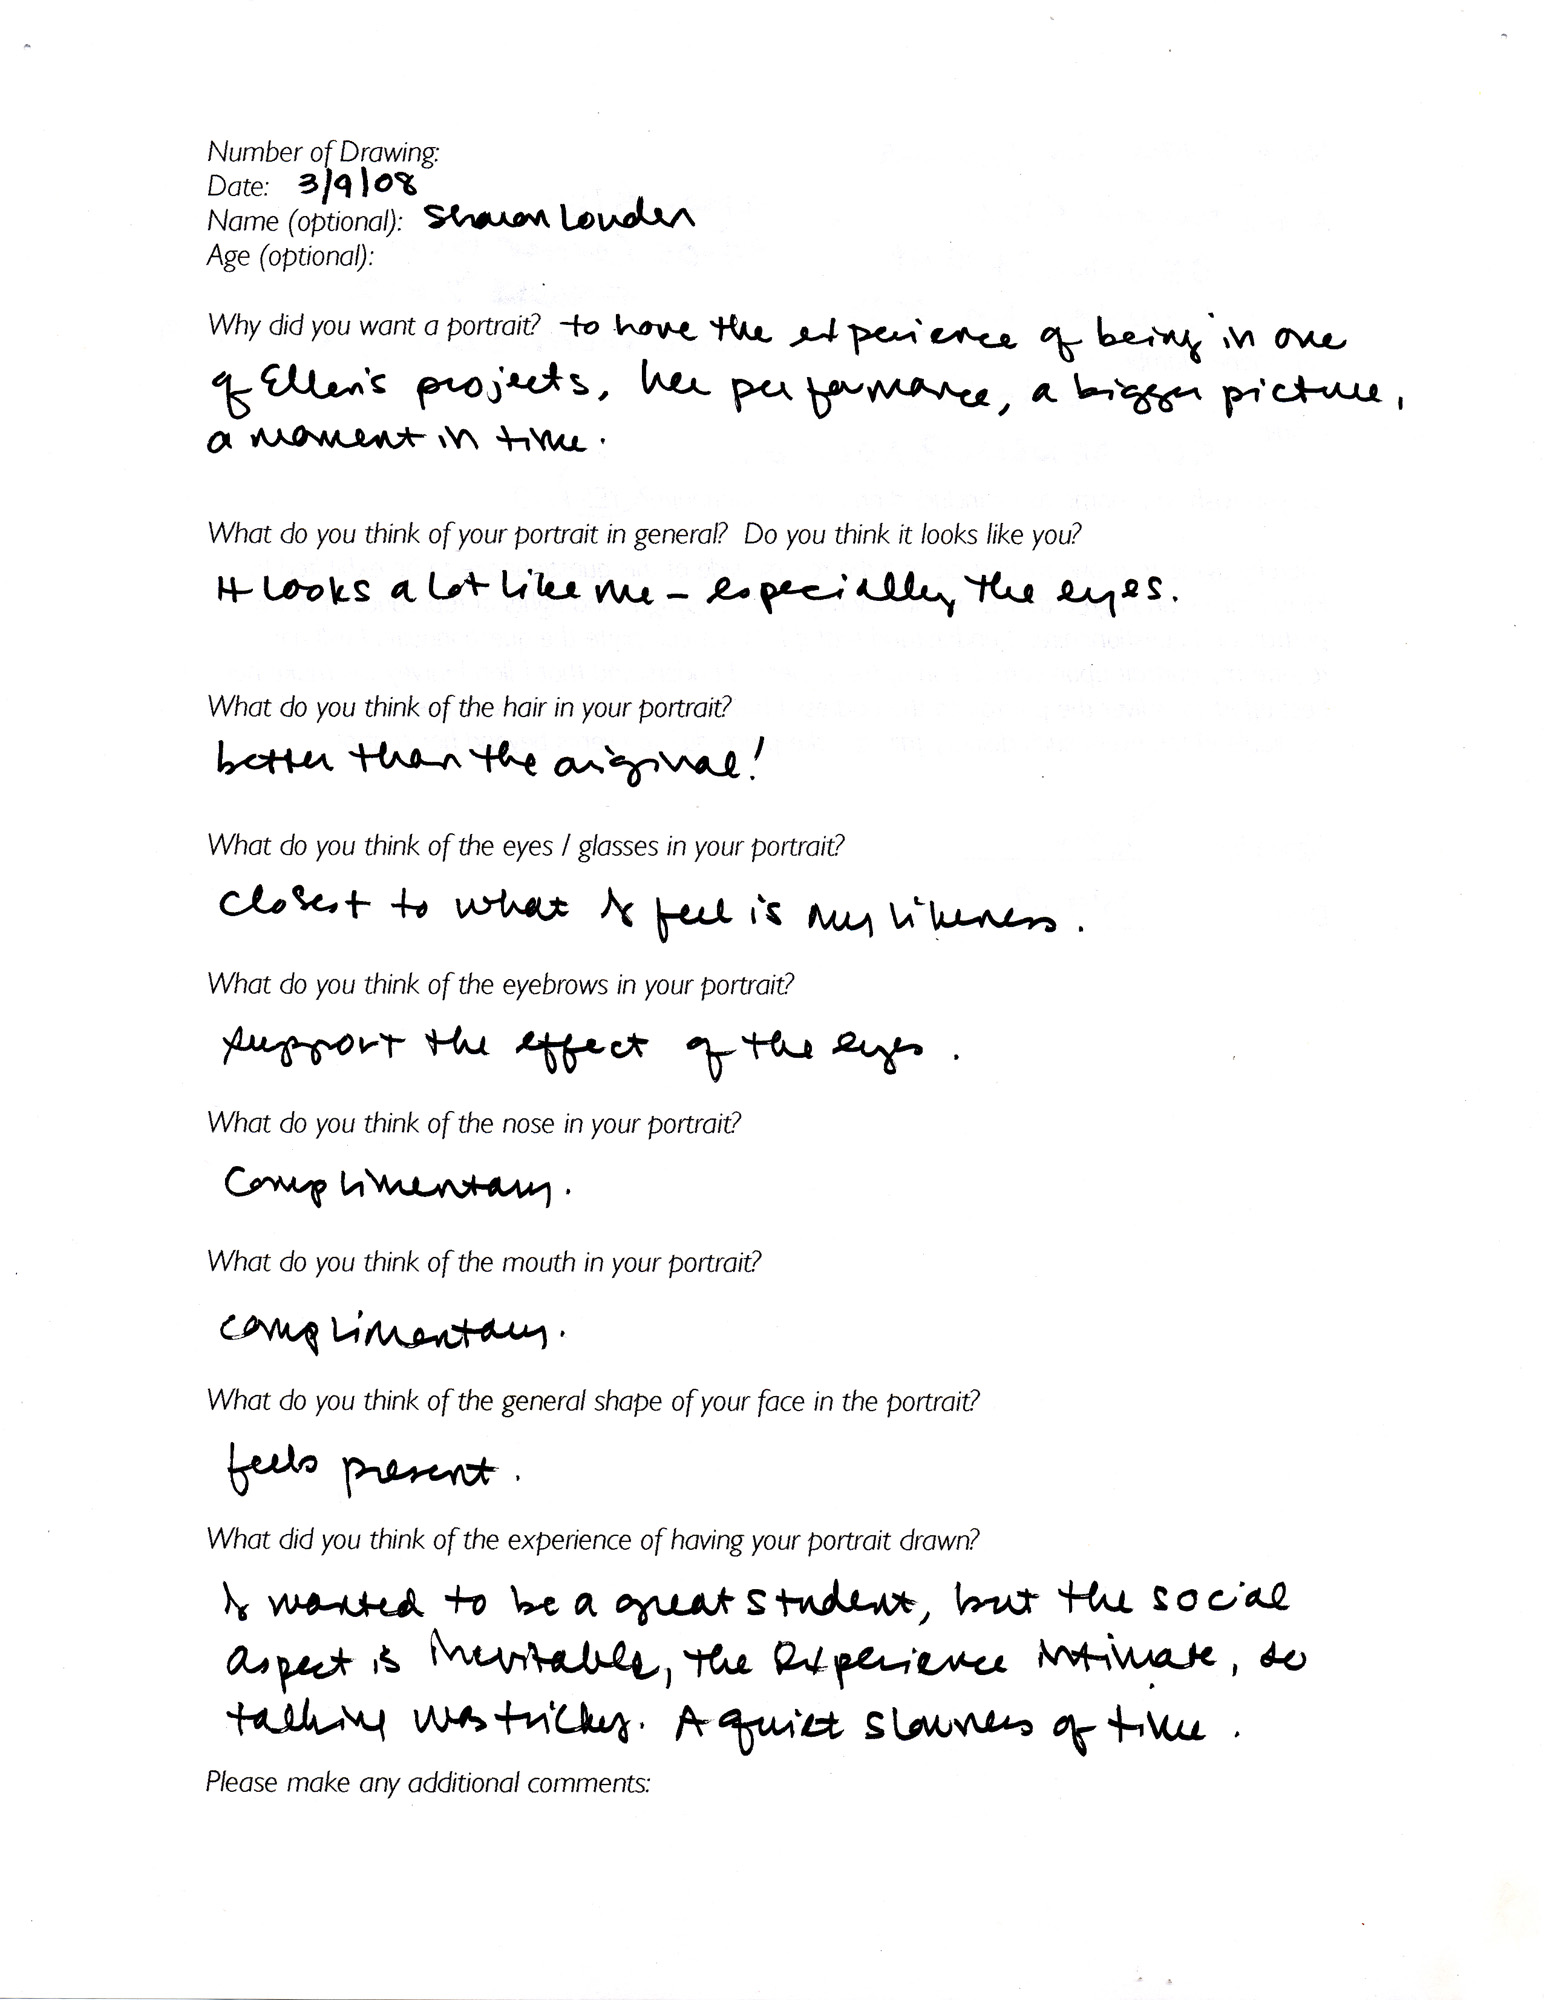 Number of Drawing:
Date: 3/9/08
Name (optional): Sharon Louden
Age (optional):
Why did you want a portrait? to have the experience of being in one
of Ellen's projects, her performance, a bigger picture,
a moment in time.
What do you think of your portrait in general? Do you think it looks like you?
It looks a lot like me – especially the eyes.
What do you think of the hair in your portrait?
better than the original!
What do you think of the eyes / glasses in your portrait?
closest to what I feel is my likeness.
What do you think of the eyebrows in your portrait?
support the effect of the eyes.
What do you think of the nose in your portrait?
Complimentary.
What do you think of the mouth in your portrait?
complimentary.
What do you think of the general shape of your face in the portrait?
feels present.
What did you think of the experience of having your portrait drawn?
I wanted to be a great student, but the social
aspect is inevitable, the experience intimate, so
talking was tricky. A quiet slowness of time.
Please make any additional comments: